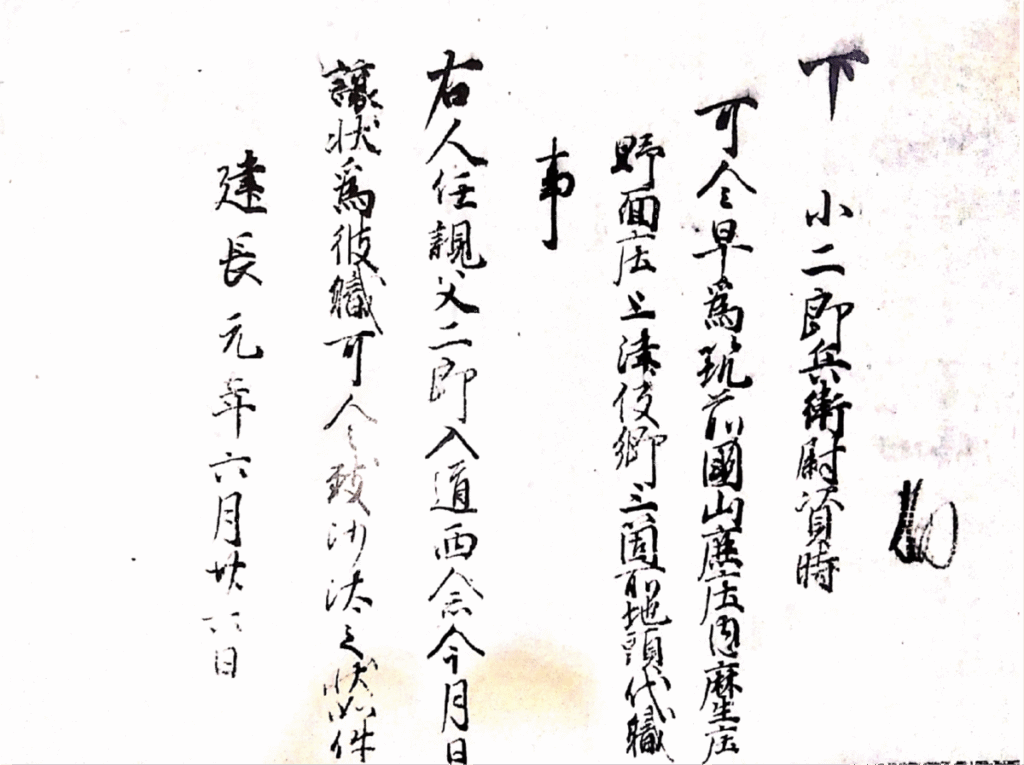 下　小二郎兵衛尉資時
可令早爲筑前國山鹿庄内麻生庄
野面庄上津役郷三箇所地頭代職
事
右人任親父二郎入道西念今月日
譲状爲彼職可令致沙汰之状如件
建長元年六月廿六日